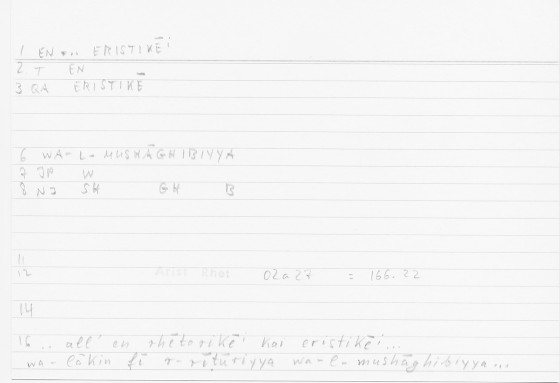 1 EN ... ERISTIKĒⁱ
2 T EN
3 QA ERISTIKĒ
6 WA-L-MUSHĀGHIBIYYA
7 JP W
8 NJ SH GH B
11
12 Arist Rhet 02a27 = 166.22
14
15 .. all' en rhētorikēⁱ kai eristikēⁱ...
wa-lākin fī r-rīṭūriyya wa-l-mushāghibiyya...